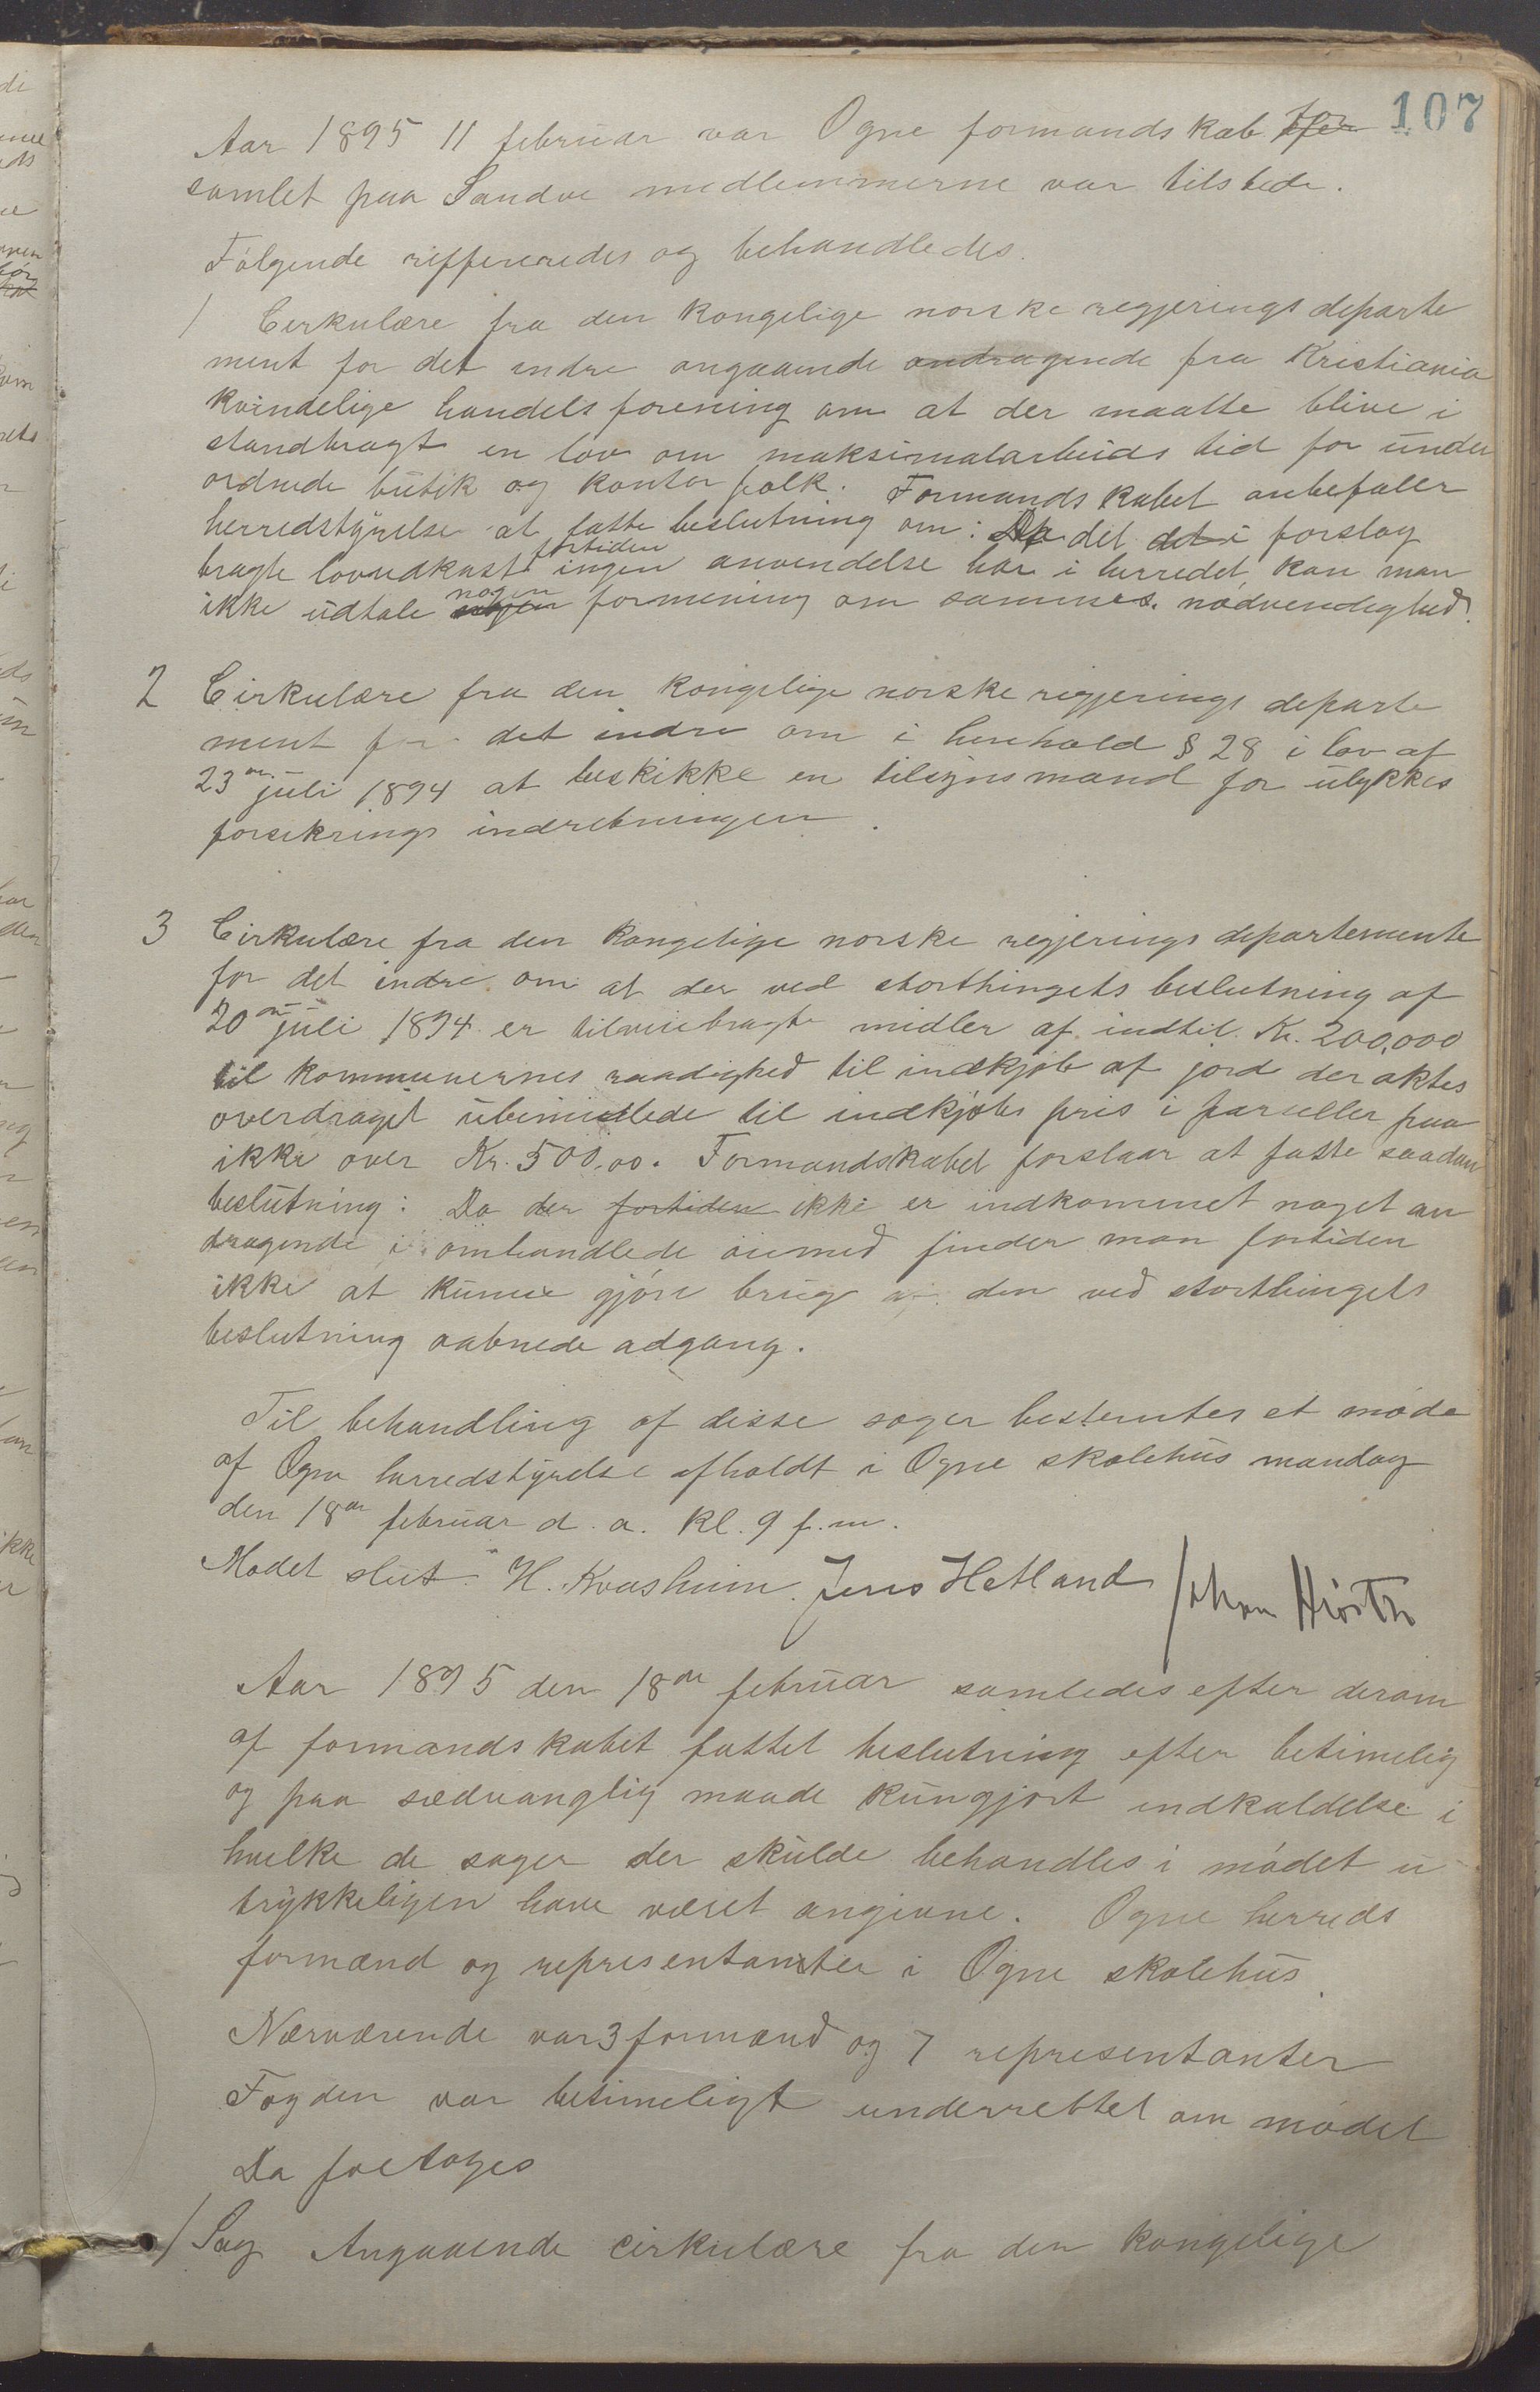 107
Aar 1895 11 februar var Ogne formandskab for
samlet paa Sandve medlemmerne var tilstede.
Følgende reffereredes og behandledes.
1 Cerkulære fra den kongelige norske regjerings departe
ment for det indre angaaende andragende fra Kristiania
kvindelige handelsforening om at der maatte blive i
standbragt en lov om maksimalarbeids tid for under
ordnede butik og kontor folk. Formandskabet anbefaler
herredstyrelse at fatte beslutning om: Da det det i forslag
bragte lovudkast fortiden ingen anvendelse har i herredet, kan man
ikke udtale nogen formening om sammes nødvendighed.
2 Cirkulære fra den kongelige norske regjerings departe
ment for det indre om i henhold § 28 i lov af
23de juli 1894 at beskikke en tilsynsmand for ulykkes
forsikrings indretningen.
3 Cirkulære fra den kongelige norske regjerings departemente
for det indre om at der ved storthingets beslutning af
20de juli 1894 er tilveiebragte midler af indtil Kr. 200,000
til kommunernes raadighed til indkjøb af jord der aktes
overdraget ubemidlede til indkjøbs pris i parseller paa
ikke over Kr. 500,00. Formandskabet forslaar at fatte saadan
beslutning: Da der fortiden ikke er indkommet noget an
dragende i omhandlede øiemed finder man fortiden
ikke at kunne gjøre brug af den ved storthingets
beslutning aabnede adgang.
Til behandling af disse sager bestemtes et møde
af Ogne herredstyrelse afholdt i Ogne skolehus mandag
den 18de februar d. a. kl. 9 f. m.
Mødet slut. H. Kvasheim. Jens Hetland Johan Hirsth
Aar 1895 den 18de februar samledes efter derom
af formandskabet fattet beslutning efter betimelig
og paa sædvanglig maade kungjort indkaldelse i
hvilke de sager der skulde behandles i mødet u
trykkeligen have været angivne. Ogne herreds
formænd og representanter i Ogne skolehus.
Nærværende var 3 formænd og 7 representanter
Fogden var betimeligt underrettet om mødet
Da foretoges
1 Sag Angaaende cirkulære fra den kongelige